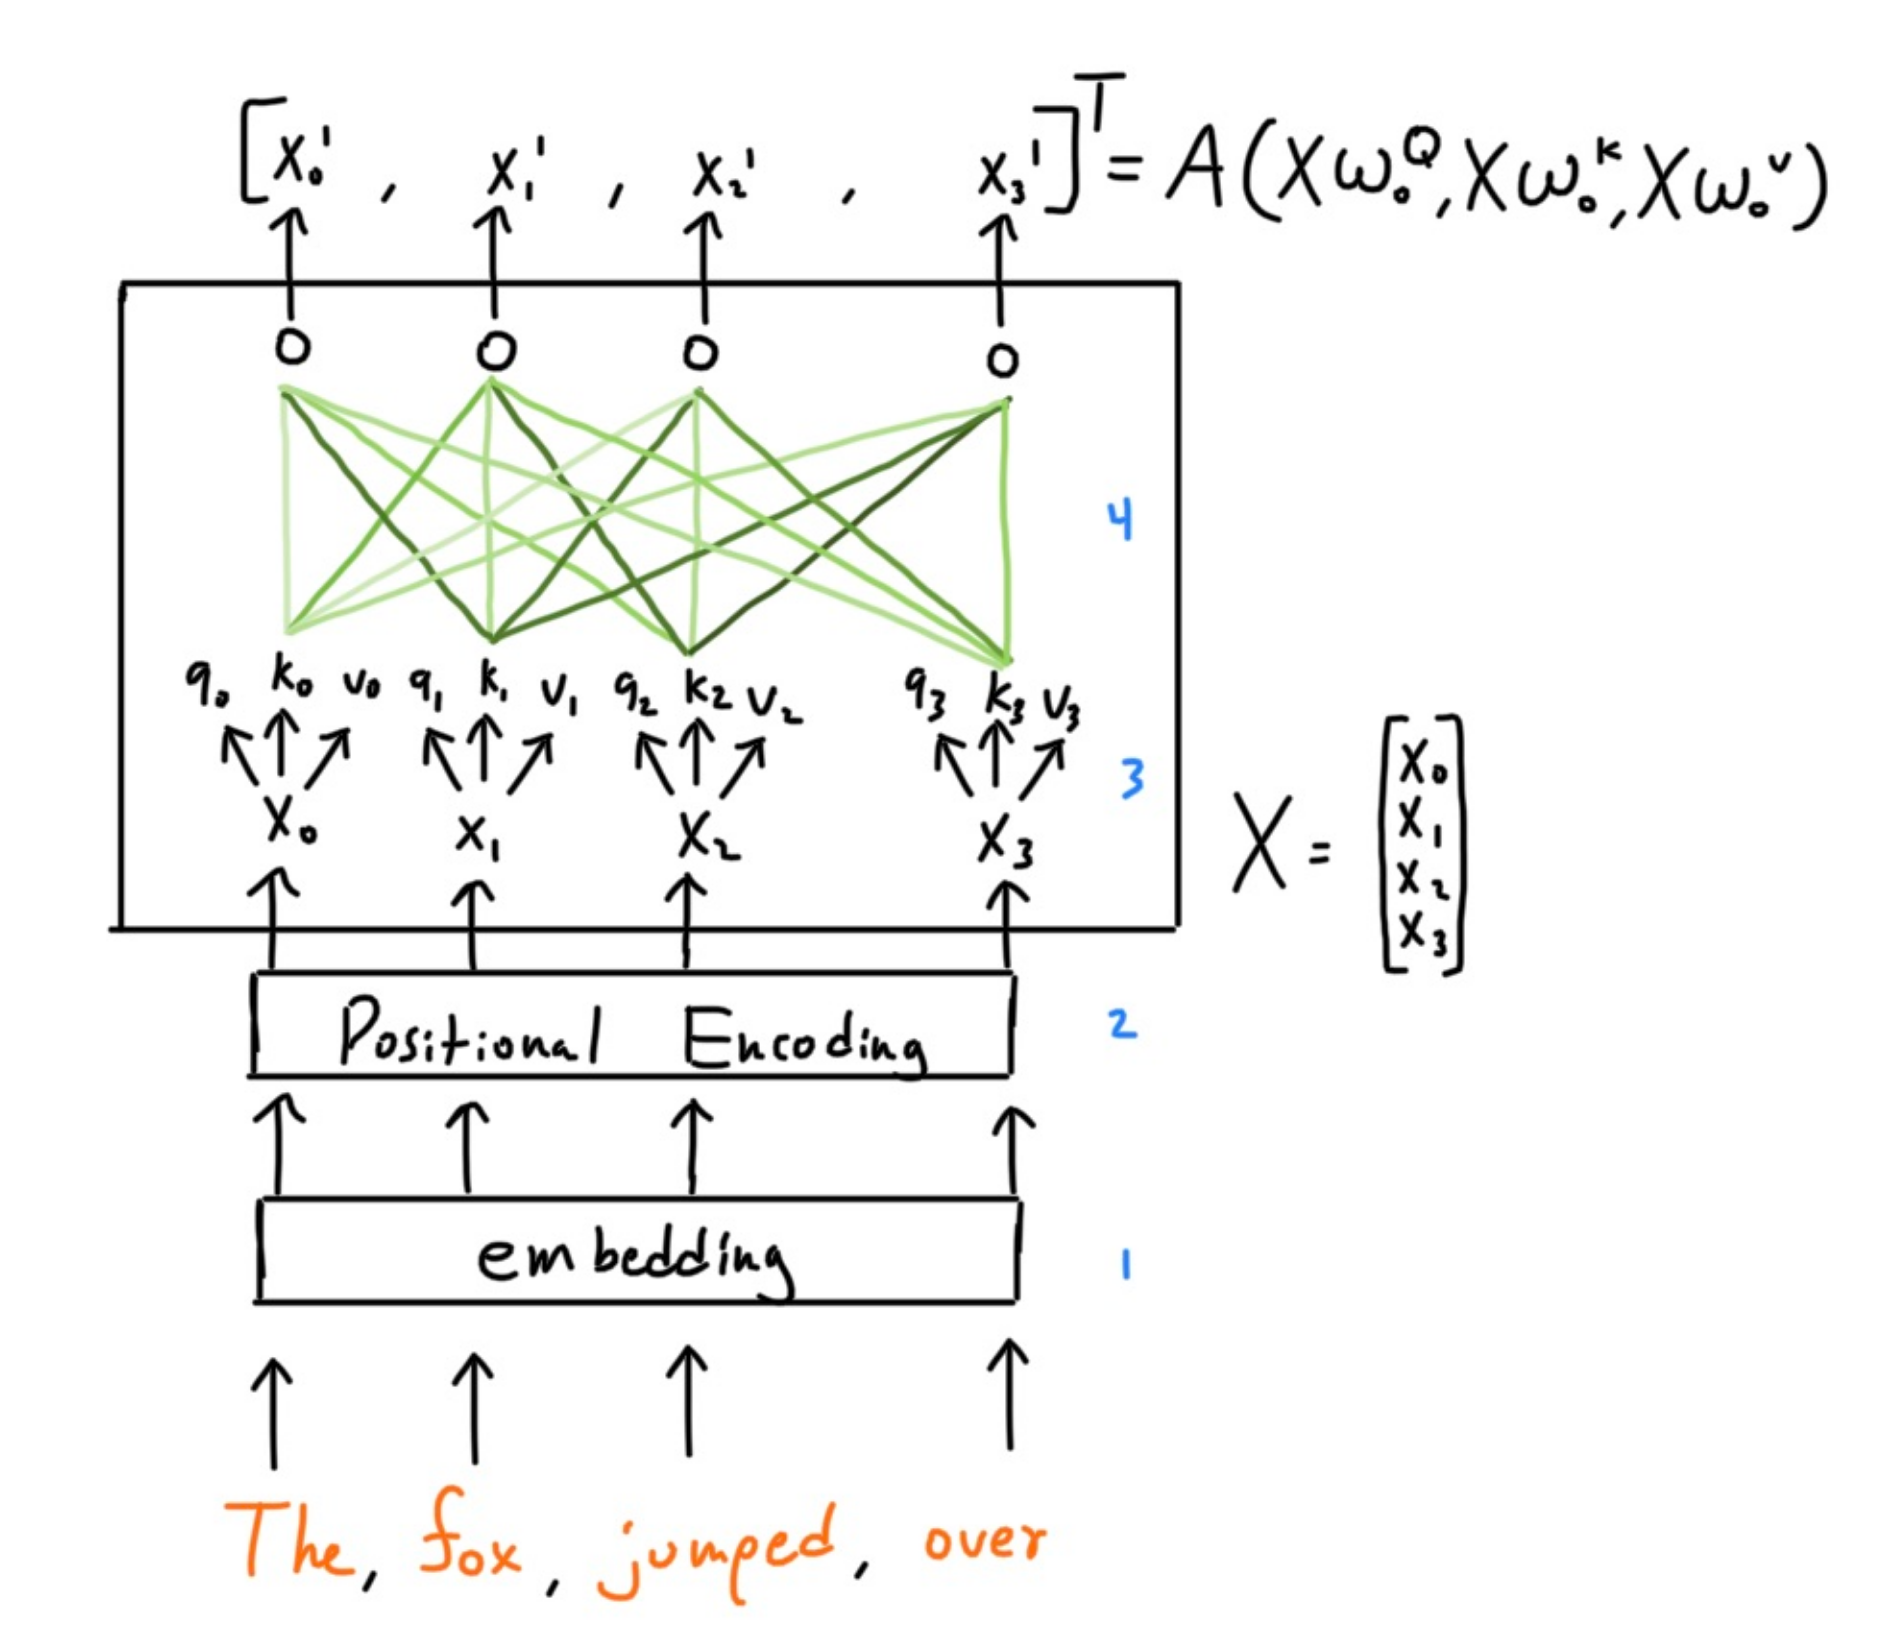 [x₀', x₁', x₂', x₃']ᵀ = A(Xω₀^Q, Xω₀^k, Xω₀^v)
0 0 0 0
4
q₀ k₀ v₀ q₁ k₁ v₁ q₂ k₂ v₂ q₃ k₃ v₃
x₀ x₁ x₂ x₃
3
X = [x₀ x₁ x₂ x₃]
Positional Encoding
2
embedding
1
The, fox, jumped, over